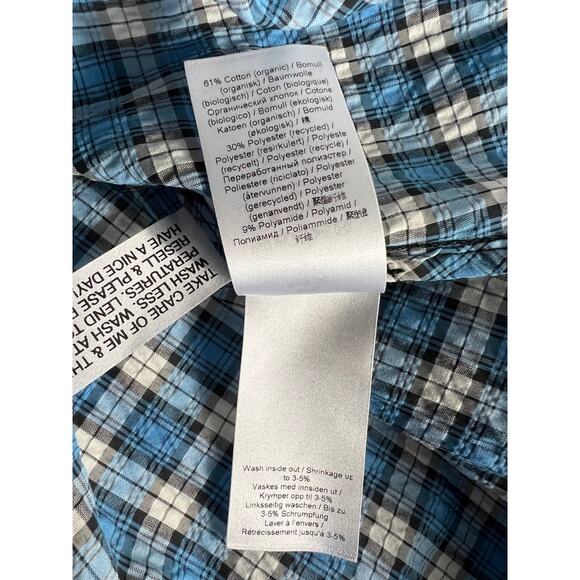 61% Cotton (organic) / Bomull
(organisk) / Baumwolle
(biologisch) / Coton (biologique) /
Органический хлопок / Cotone
(biologico) / Bomull (ekologisk) /
Katoen (organisch) / Bomuld
(økologisk) / 棉
30% Polyester (recycled) /
Polyester (resirkulert) / Polyester
(recycelt) / Polyester (recyclé) /
Переработанный полиэстер /
Poliestere (riciclato) / Polyester
(återvunnen) / Polyester
(gerecycled) / Polyester
(genanvendt) / 聚酯纤维
9% Polyamide / Polyamid /
Полиамид / Poliammide /
纤维
TAKE CARE OF ME & TH
WASH LESS. WASH AT
PERATURES. LEND T
RESELL & PLEASE
HAVE A NICE DAY!
Wash inside out / Shrinkage up
to 3-5%
Vaskes med innsiden ut /
Krymper opp til 3-5%
Linksseitig waschen / Bis zu
3-5% Schrumpfung
Laver à l'envers /
Rétrécissement jusqu'à 3-5%